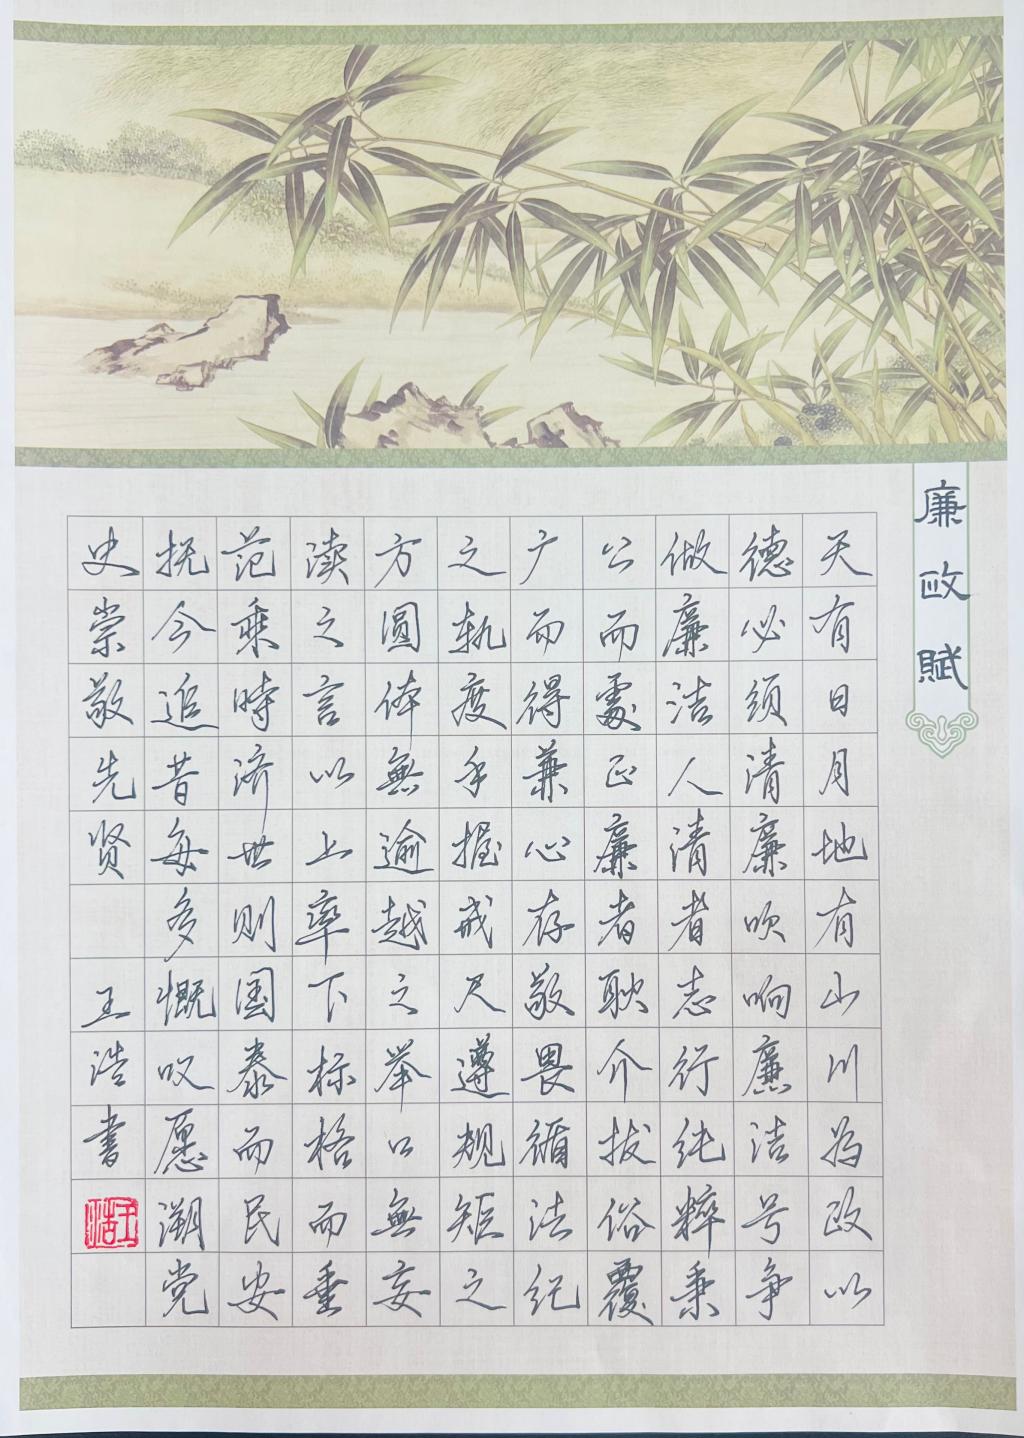 廉政赋
天有日月地有山川为政以
德必须清廉吹响廉洁号争
做廉洁人清者志行纯粹秉
公而处正廉者耿介拔俗覆
广而得兼心存敬畏循法纪
之轨度手握戒尺遵规矩之
方圆体無逾越之举口無妄
渎之言以上率下标格而垂
范乘時济世则国泰而民安
抚今追昔每多慨叹愿溯党
史崇敬先贤
王浩書
王浩